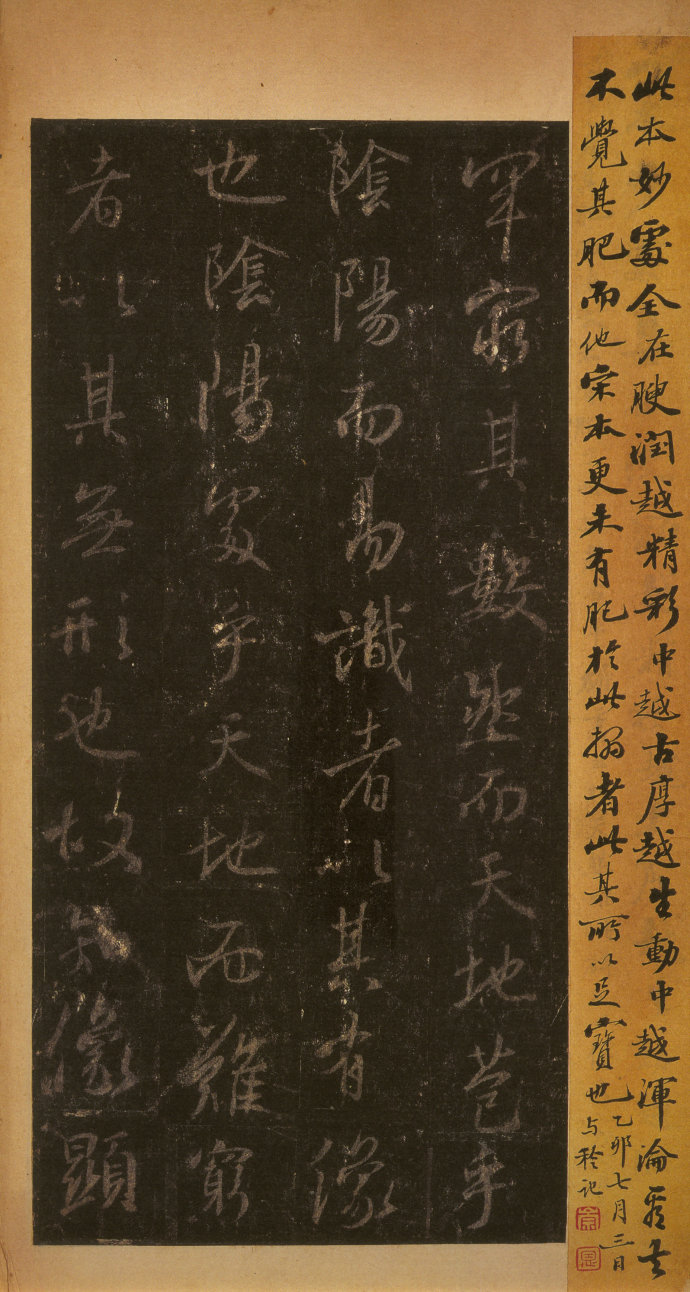 此本妙處全在腴潤越精彩中越古厚越生動中越渾淪看去
不覺其肥而他宋本更未有肥於此搨者此其所以足寶也乙卯七月三日
与稔記
罕窮其數然而天地苞乎
陰陽而易識者以其有像
也陰陽處乎天地而難窮
者以其無形也故知像顯